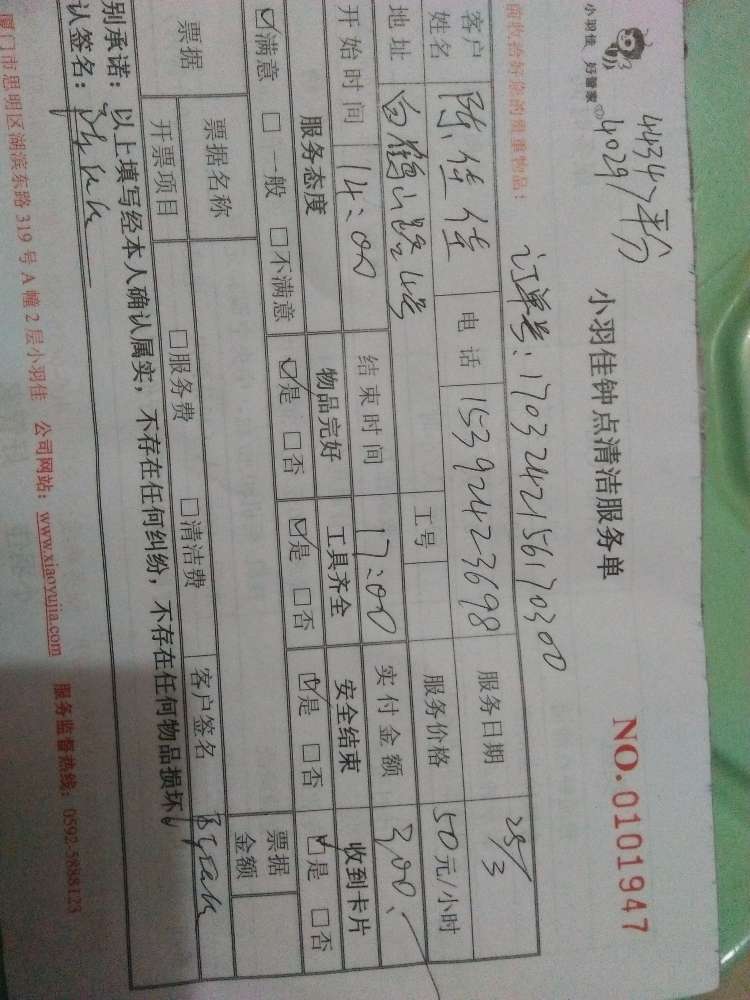 小羽佳 好管家
4434
4029 平分
小羽佳钟点清洁服务单
NO.0101947
订单号:1703242156170300
客户姓名 陈佳佳 电话 15392423698 服务日期 25/3
地址 白鹤山路4号 工号 服务价格 50元/小时
开始时间 14:00 结束时间 17:00 实付金额 300.
服务态度 物品完好 工具齐全 安全结束 收到卡片
☑满意 □一般 □不满意 ☑是 □否 ☑是 □否 ☑是 □否 ☑是 □否
票据 票据名称 票据金额
开票项目 □服务费 □清洁费 客户签名
别承诺:以上填写经本人确认属实,不存在任何纠纷,不存在任何物品损坏
认签名:
厦门市思明区湖滨东路319号A幢2层小羽佳 公司网站:www.xiaoyujia.com 服务监督热线:0592-5888123